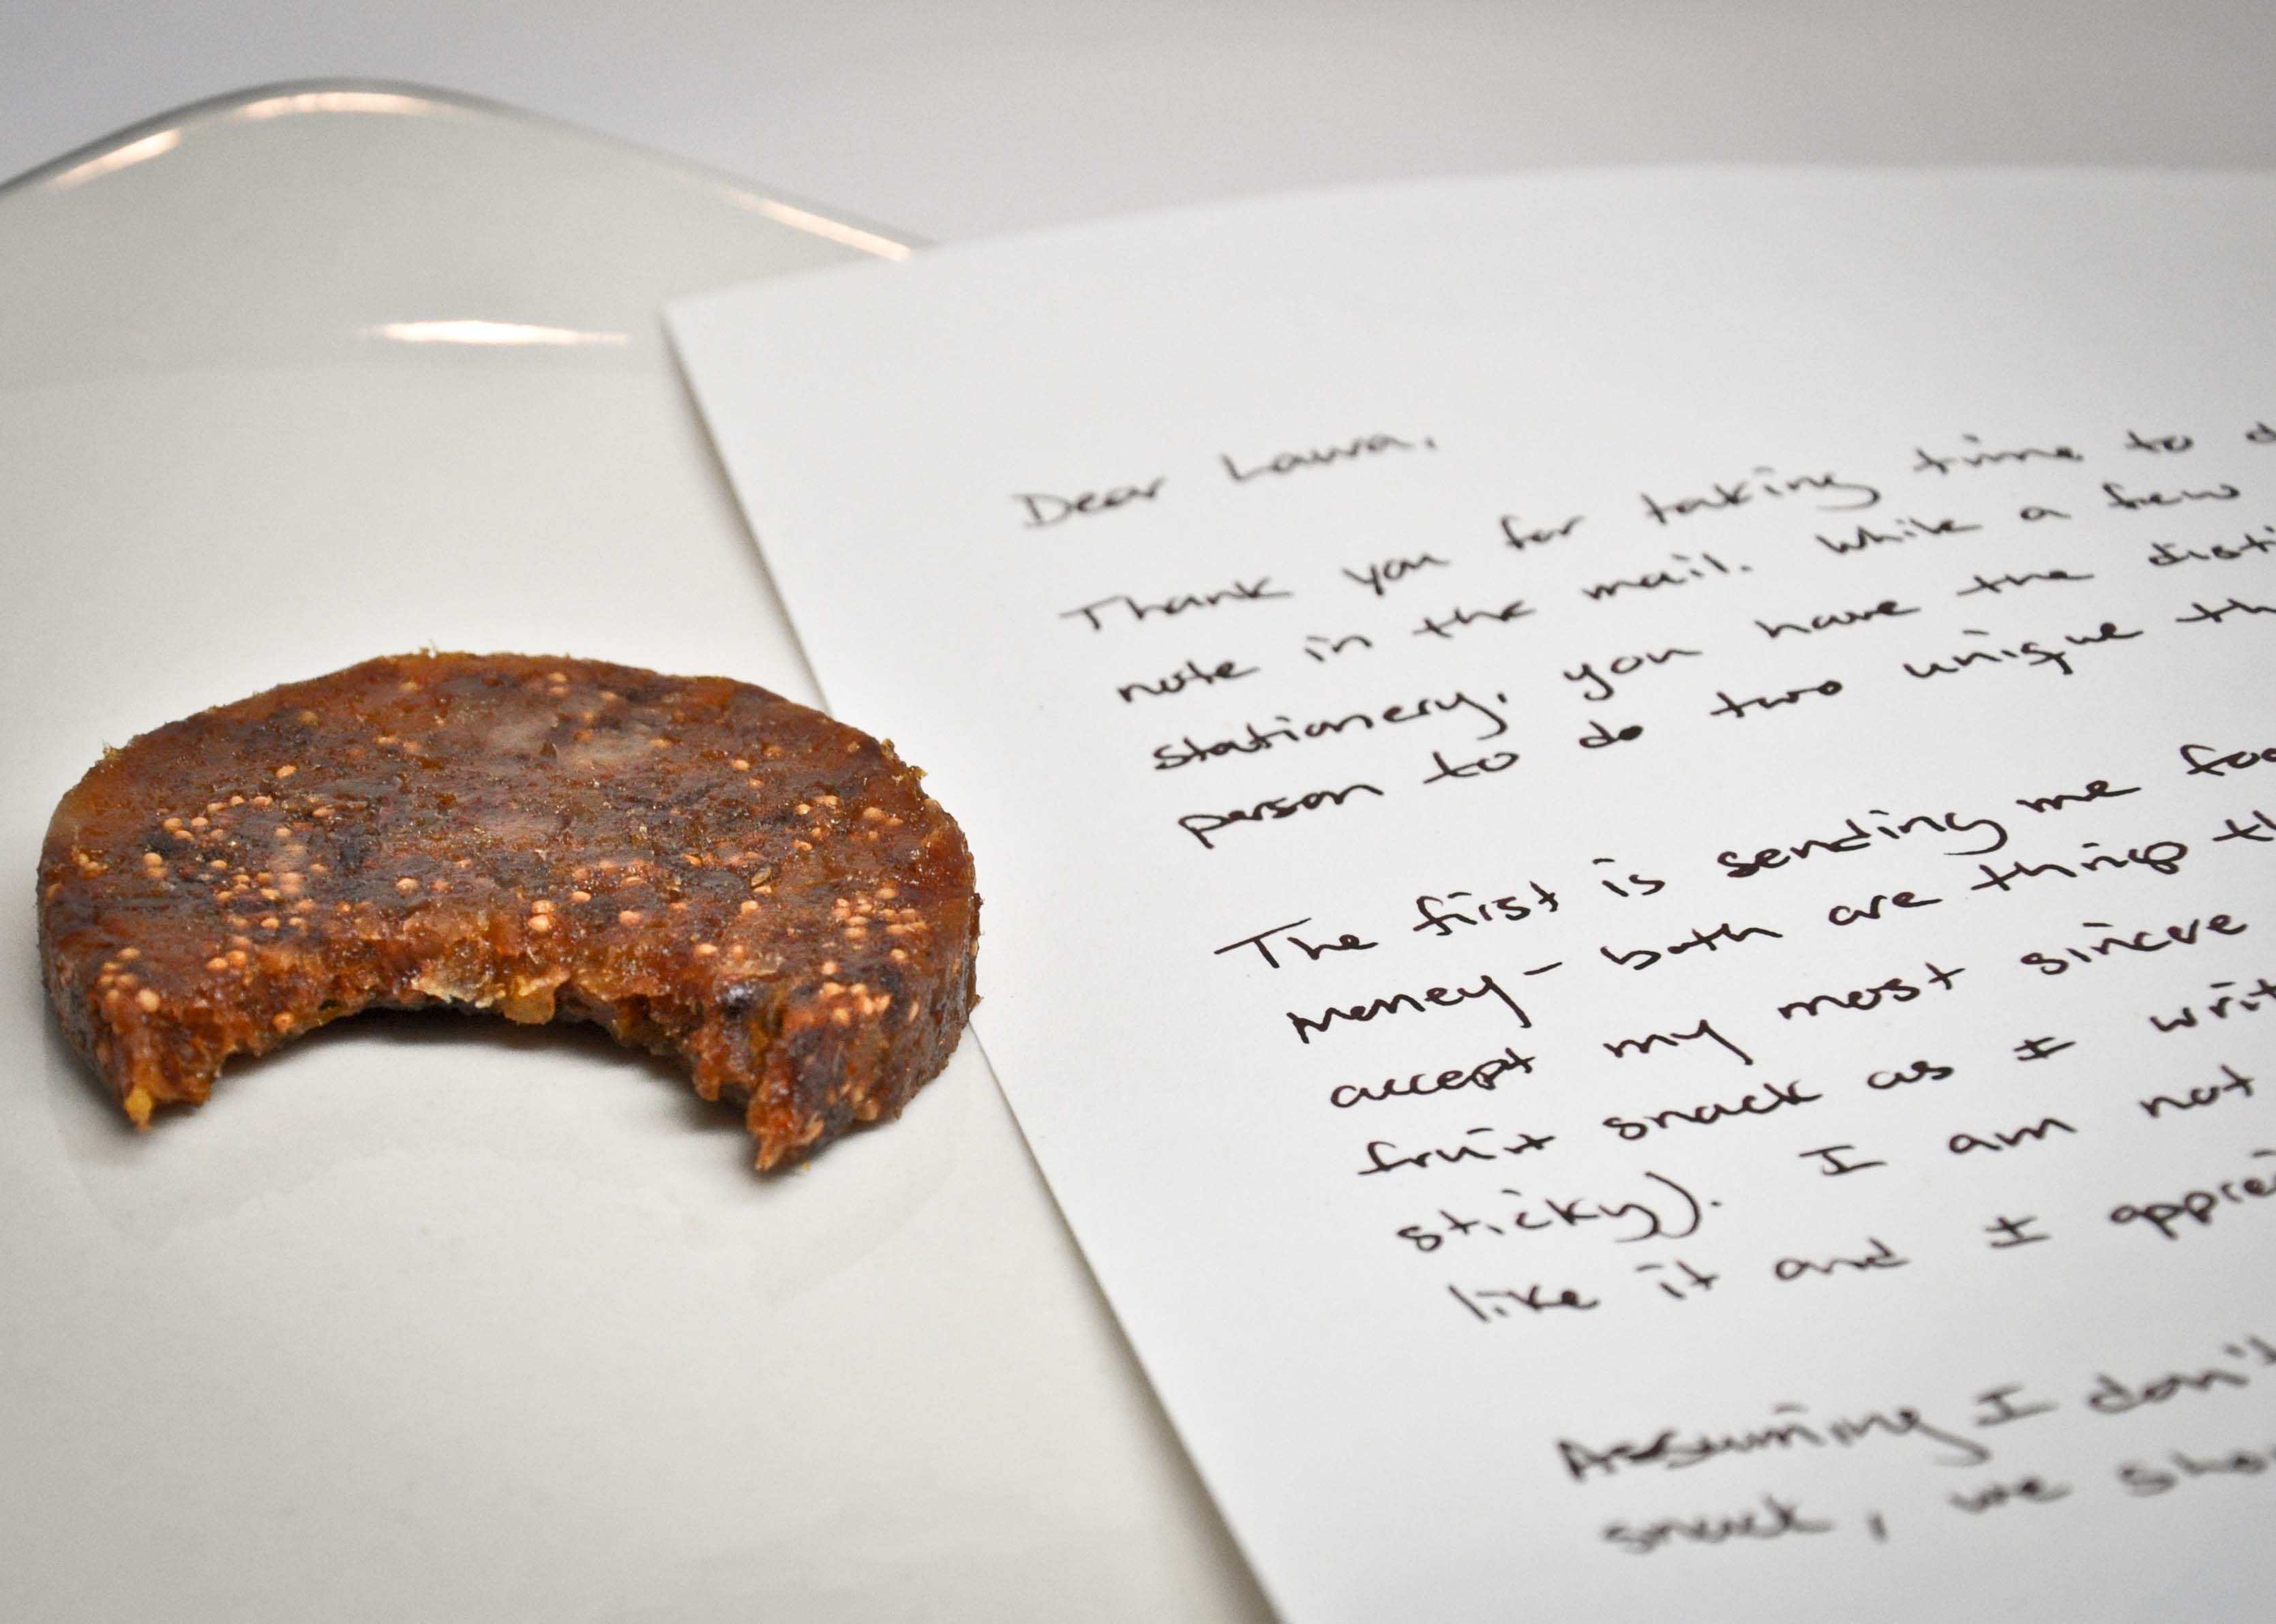 Dear Laura,
Thank you for taking time to
note in the mail. While a few
stationery, you have the
person to do two unique
The first is sending me
Money- both are things
accept my most sincere
fruit snack as I
sticky). I am not
like it and I
Assuming I don't
snack, we